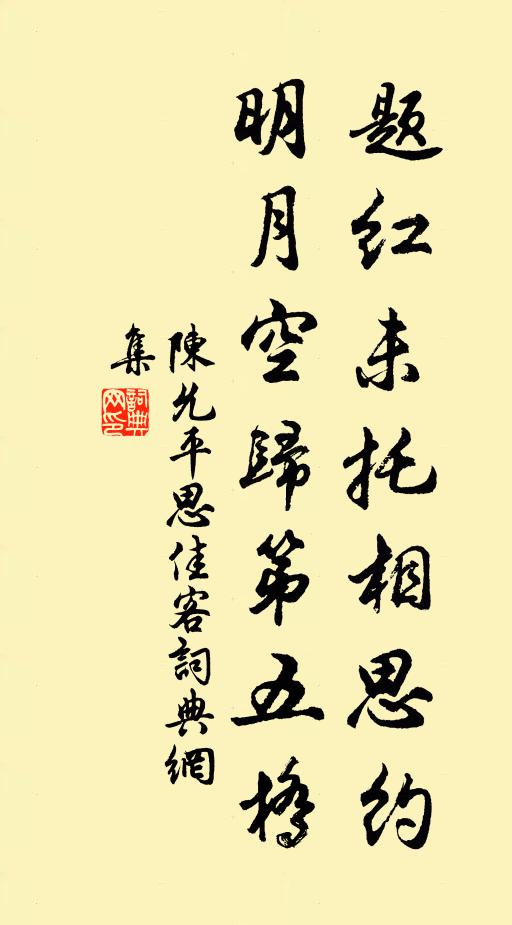 题红未托相思约
明月空歸第五橋
陳允平思佳客詞典網
集
詞典
网印